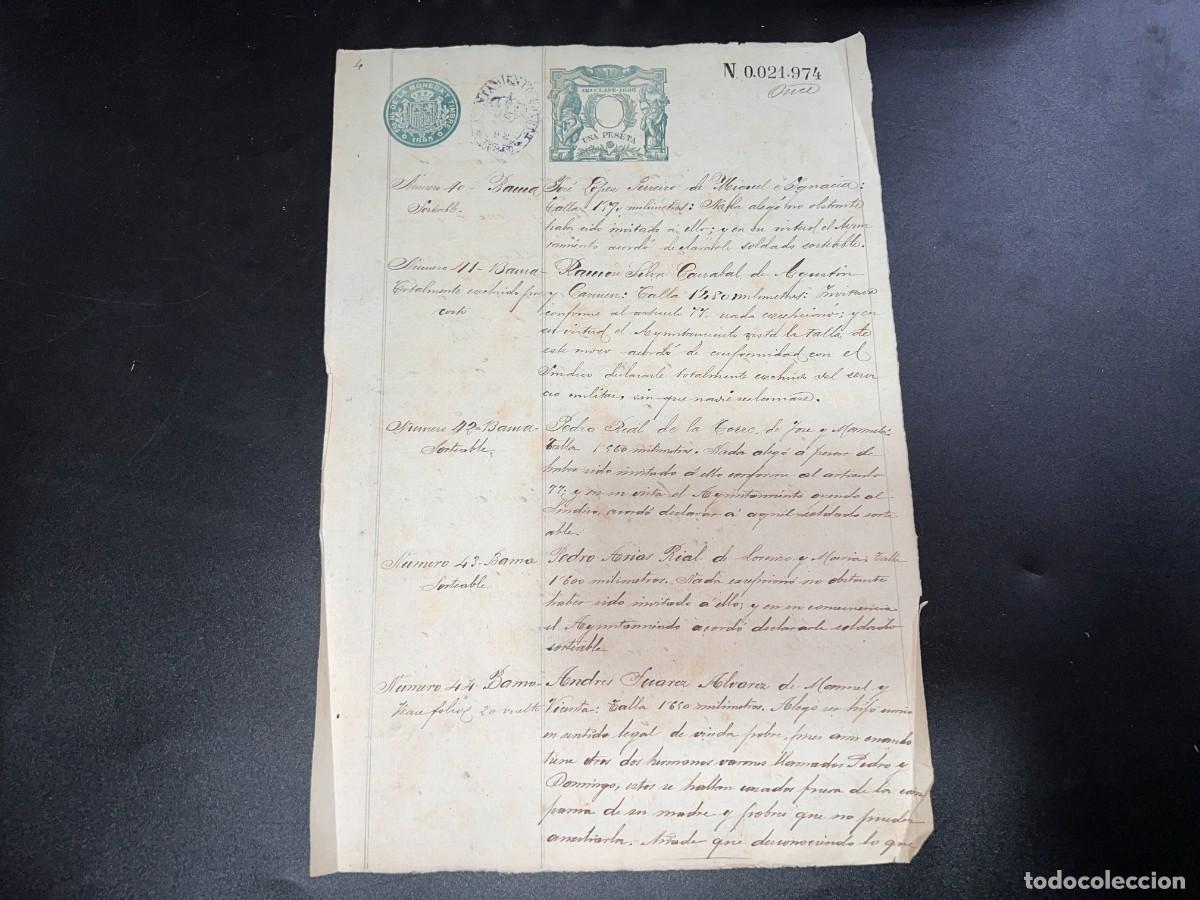 4
N. 0.021.974
Once
FAB. DE LA MONEDA Y TIMBRE
1895
AYUNTAMIENTO
CLASE
UNA PESETA
Número 40 - Bama
Sorteable.
José López Ferreiro de Miguel é Ygnacia:
Talla 1'570 milimetros: Nada alegó no obstante
haber sido invitado a ello; y en su virtud el Ayun
tamiento acordó declararle soldado sorteable.
Número 41 - Bama -
Totalmente excluido por
corto
Ramón Silva Carrabal de Agustín
y Carmen: Talla 1'480 milimetros: Invitado
conforme al articulo 77 nada excepcionó; y en
su virtud el Ayuntamiento vista la talla de
este mozo acordó de conformidad con el
Síndico declararle totalmente excluido del servi
cio militar, sin que nadie reclamase.
Número 42 - Bama -
Sorteable.
Pedro Rial de la Torre, de José y Manuela:
Talla 1'560 milimetros. Nada alegó á pesar de
haber sido invitado á ello conforme al articulo
77; y en su vista el Ayuntamiento oyendo al
Síndico, acordó declarar á aquel soldado sorte
able.
Número 43 - Bama
Sorteable
Pedro Arias Rial de Lorenzo y Maria: Talla
1'600 milimetros. Nada excepcionó no obstante
haber sido invitado á ello; y en su consecuencia
el Ayuntamiento acordó declararle soldado
sorteable.
Número 44 - Bama -
Vease folio 20 vuelto
Andres Suarez Alvarez de Manuel y
Vicenta: Talla 1'650 milimetros. Alegó ser hijo unico
en sentido legal de viuda pobre, pues aun cuando
tiene otros dos hermanos varones llamados Pedro y
Domingo, estos se hallan casados fuera de la com
pañia de su madre y pobres que no pueden
auxiliarla. Añade que desconociendo lo que
todocoleccion